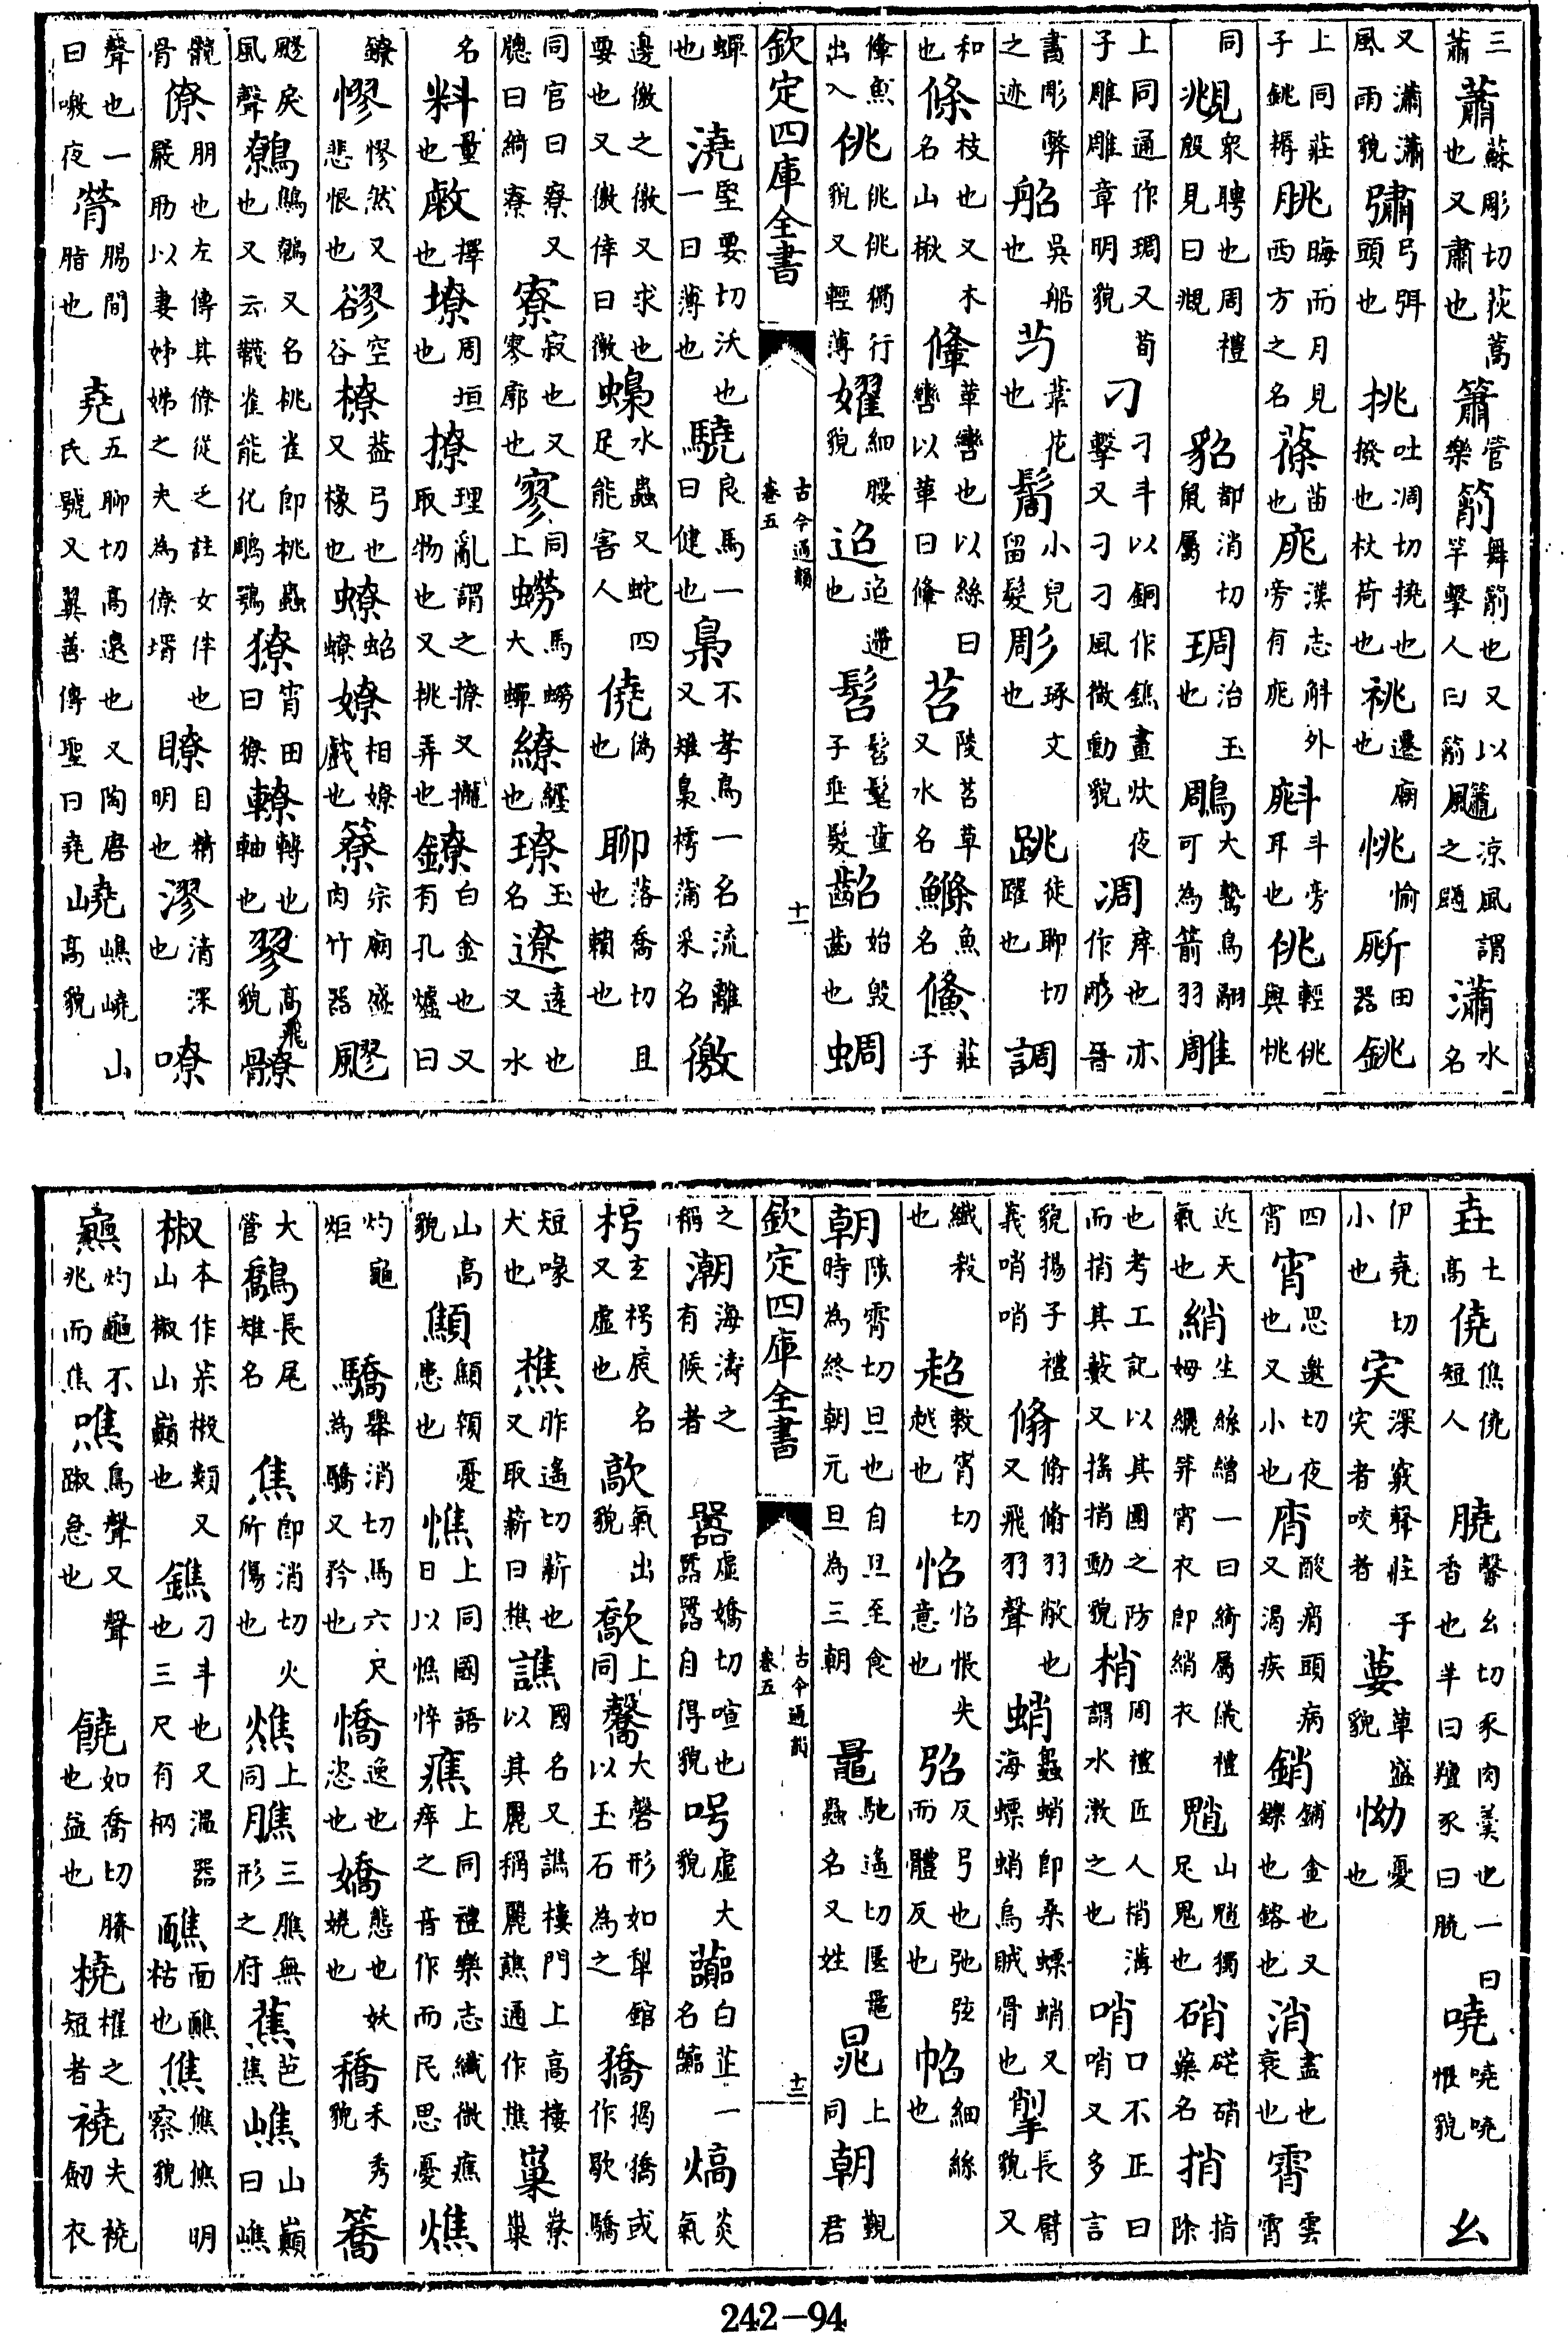 三蕭 蕭 蘇彫切荻蒿也又肅也 簫 管樂 箾 舞箾也又以竿擊人曰箾 涼風謂之 瀟 水名
又瀟瀟風雨貌 彇 弓弭頭也 挑 吐凋切撓也撥也杖荷也 祧 遷廟也 恌 愉 𣂁 田器 銚
上同莊子銚耨 朓 晦而月見西方之名 蓧 苗也 庣 漢志斛外旁有庣 斛 斗旁耳也 佻 輕佻與恌
同 覜 衆聘也周禮殷見曰覜 貂 都消切鼠屬 琱 治玉也 鵰 大鷙鳥翮可為箭羽 雕
上同通作琱又荀子雕雕章明貌 刁 刁斗以銅作鐎晝炊夜擊又刁刁風微動貌 凋 庠也亦作彫晉
書彫弊之迹 船 吳船也 芀 葦花也 髫 小兒留髮 彫 琢文也 跳 徒聊切躍也 調
和也 條 枝也又木名山楸 鞗 革轡也以絲曰轡以革曰鞗 苕 陵苕草又水名 鰷 魚名 鯈 莊子
鯈魚出入 佻 佻佻獨行貌又輕薄 嬥 細腰貌 迢 迢遰也 髫 髫髦童子垂髮 齠 始毀齒也 蜩
欽定四庫全書 古今通韻 卷五 十一
蟬也 澆 堅要切沃也一曰薄也 驍 良馬一曰健也 梟 不孝鳥一名流離又雉梟樗蒲采名 徼
邊徼之徼又求也要也又徼倖曰徼 蟂 水蟲又蛇四足能害人 僥 偽也 聊 落喬切且也賴也
同官曰寮又牕曰綺寮 寮 寂也又寥廓也 寥 同上 蟧 馬蟧大蟬 繚 經也 璙 玉名 遼 遠也又水
名 料 量也 敹 擇也 墩 周垣也 撩 理亂謂之撩又攏取物也又挑弄也 鐐 白金也又有孔爐曰
鐐 憀 憀然又悲恨也 豂 空谷 橑 蓋弓也又椽也 蟟 蛁蟟 嫽 相嫽戲也 簝 宗廟盛肉竹器 飂
飂戾風聲 鷯 鷦鷯又名桃雀即桃蟲也又云鸋雀能化鵰鶚 獠 宵田曰獠 轑 轉也軸也 翏 高飛貌 髎
髖骨 僚 朋也左傳其僚從之註女伴也嚴助以妻姊娣之夫為僚壻 瞭 目精明也 漻 清深也 嘹
聲也一曰噭夜 膋 腸間脂也 堯 五聊切高遠也又陶唐氏號又翼善傳聖曰堯 嶢 嶕嶢山高貌
垚 土高 僥 僬僥短人 膮 馨幺切豕肉羹也一曰香也羊曰羶豕曰膮 嘵 嘵嘵懼貌 幺
伊堯切小也 穾 深竅聲莊子穾者咬者 葽 草盛貌 怮 憂也
四宵 宵 思邀切夜也又小也 痟 酸痟頭病又渴疾 銷 鋪金也又鑠也鎔也 消 盡也衰也 霄 雲霄
近天氣也 綃 生絲繒一曰綺屬儀禮姆纚笄宵衣即綃衣 魈 山魈獨足鬼也 硝 硭硝藥名 捎 指除
也考工記以其圍之防而捎其藪又搖捎動貌 梢 周禮匠人梢溝謂水漱之也 哨 口不正曰哨又多言
貌揚子禮義哨哨 翛 翛翛羽敝也又飛羽聲 蛸 蟲蛸即桑螵蛸又海螵蛸烏賊骨也 揱 長臂貌又
纖殺也 超 敕宵切越也 怊 怊悵失意也 弨 反弓也弛弦而體反也 㡈 細絲也
朝 陟霄切旦也自旦至食時為終朝元旦為三朝 鼂 馳遙切匽鼂蟲名又姓 晁 上同 朝 覲君
欽定四庫全書 古今通韻 卷五 十二
之稱 潮 海濤之有候者 囂 虛嬌切喧也囂囂自得貌 呺 虛大貌 虈 白芷一名虈 熇 炎氣
枵 玄枵辰名又虛也 歊 氣出貌 歊 上同 毊 大磬形如犁錧以玉石為之 獢 猲獢或作歇驕
短喙犬也 樵 昨遙切薪也又取薪曰樵 譙 國名又譙樓門上高樓以其麗稱麗譙通作樵巢 巢 寮巢
山高貌 顦 顦顇憂患也 憔 上同國語日以憔悴 癄 上同禮樂志纖微癄瘁之音作而民思憂 燋
灼龜炬 驕 舉消切馬六尺為驕又矜也 憍 逸也恣也 嬌 態也妖嬈也 穚 禾秀貌 簥
大管 鷮 長尾雉名 焦 即消切火所傷也 燋 上同 膲 三膲無形之府 蕉 芭蕉 嶕 山巔曰嶕
椒 本作茮椒類又山椒山巔也 鐎 刁斗也又溫器也三尺有柄 醮 面醮枯也 僬 僬僬明察貌
𪚰 灼龜不兆而焦 噍 鳥聲又聲踧急也 饒 如喬切賸也益也 橈 櫂之短者 襓 夫襓劒衣
242-94